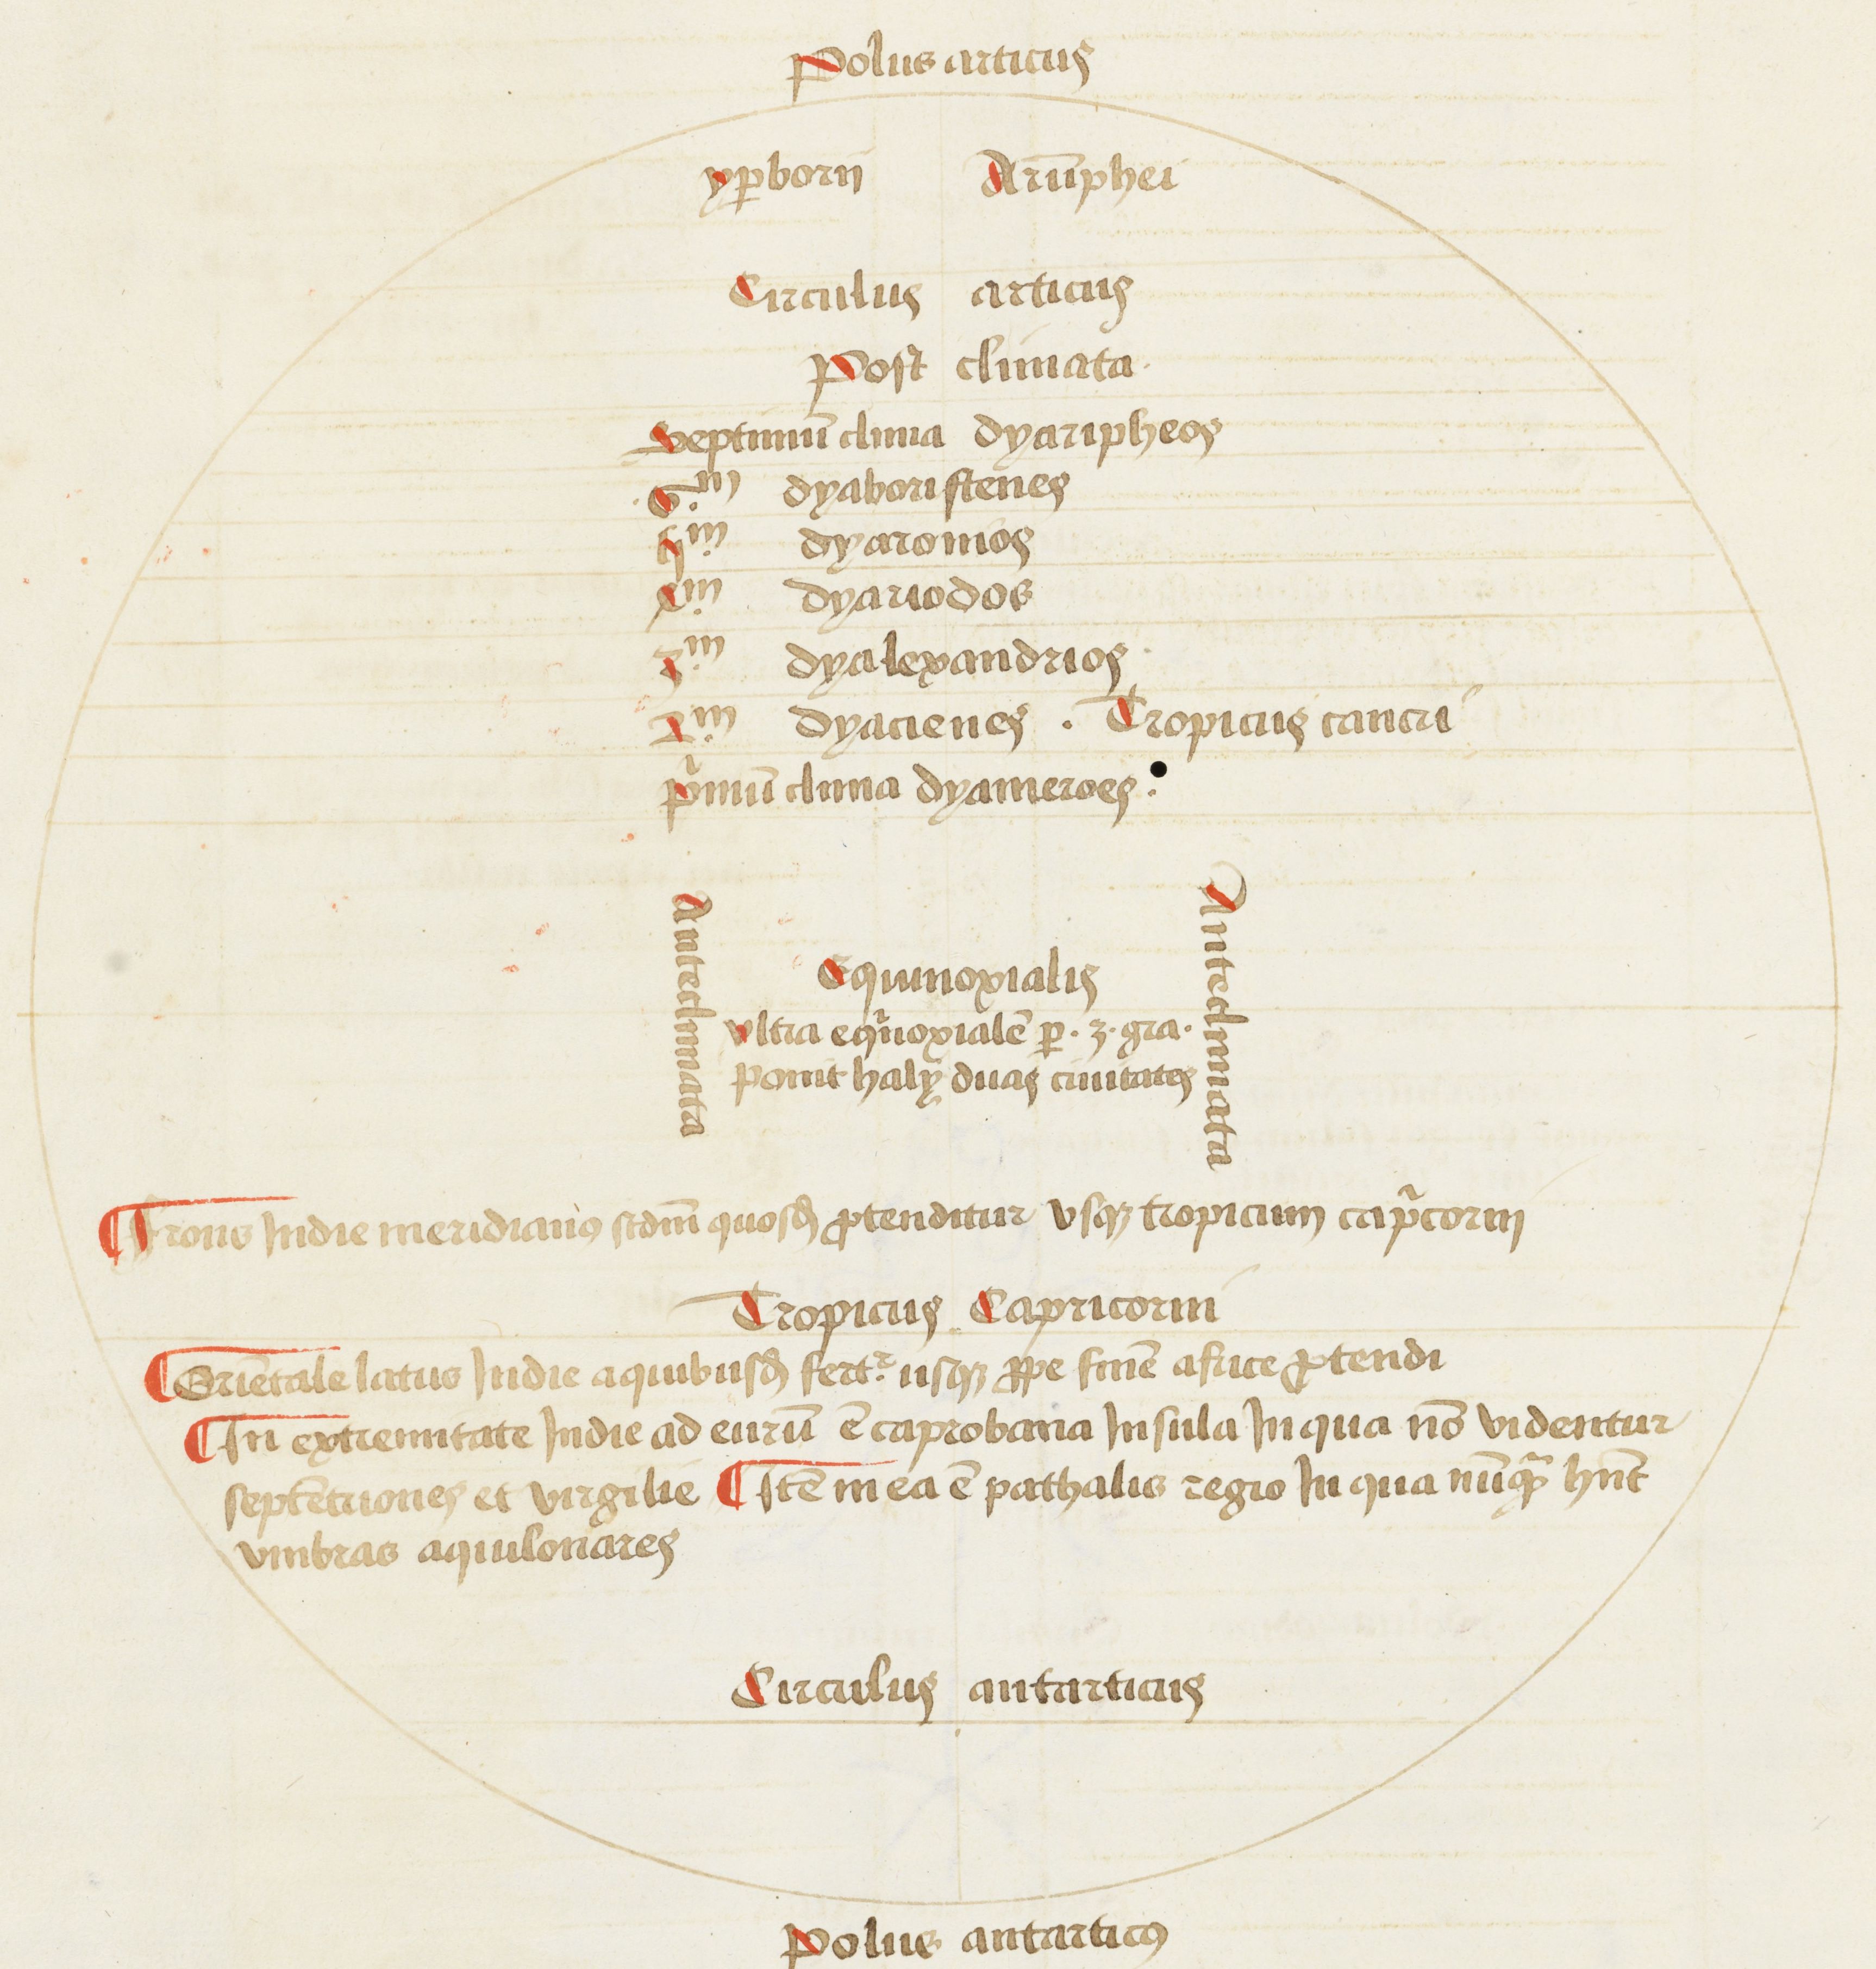 Polus articus
yꝑborii Arūphei
Circulus articus
Post climata.
Septimū clima dyaripheos
.6.m dyaboristenes
5.m dyaromos
4.m dyariodos
3.m dyalexandrios
2.m dyacienes . Tropicus cancri
pͥmū clima dyameroes.
Anteclimata
Anteclimata
Equinoxialis
vltra eqͥnoxialē ꝑ .3. gra.
ponit haly duas ciuitates
¶ Frons Indie meridianꝰ scdm̄ quosdā ꝓtenditur vsqꝫ tropicum capͥcorni
Tropicus Capricorni
¶ Oriētale latus Indie a quibusdā fertr. usqꝫ ꝓpe finē africe ꝓtendi
¶ In extremitate Indie ad eurū ē caprobana Insula In qua nō videntur
septētriones et virgilie ¶ Itē in ea ē pathalis regio In qua nūqᷓ hn̄t
vmbras aquilonares
Circulus antarticus
Polus antarticꝰ